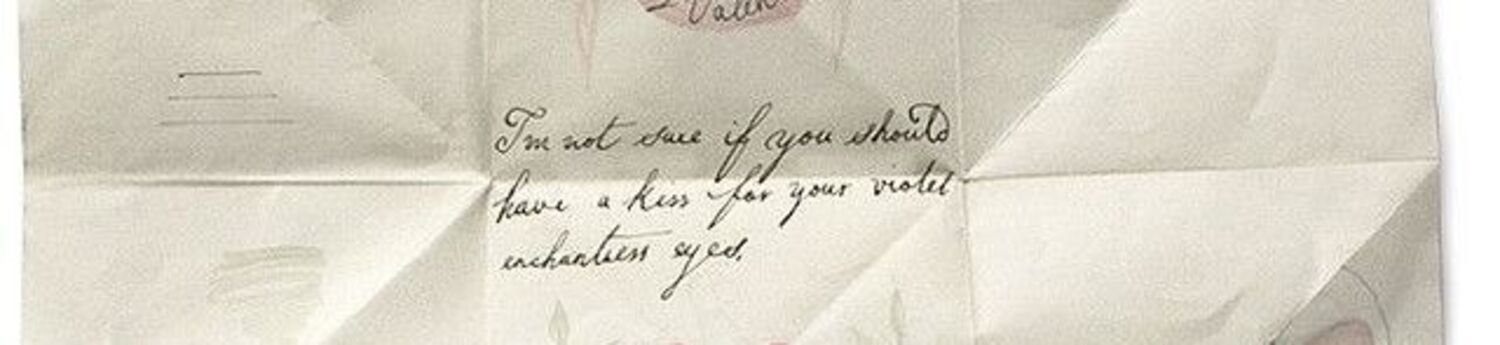 Valen
I'm not sure if you should
have a kiss for your violet
enchantress eyes.